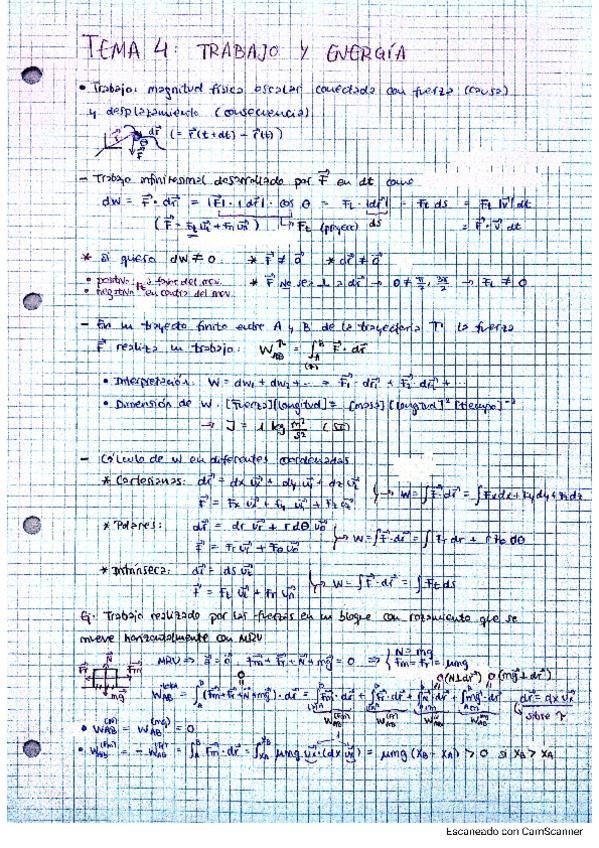 TEMA 4: TRABAJO Y ENERGÍA
• Trabajo: magnitud física escalar conectada con fuerza (causa)
y desplazamiento (consecuencia)
dr⃗ (= r⃗(t+dt) - r⃗(t))
- Trabajo infinitesimal desarrollado por F⃗ en dt como
dW = F⃗ · dr⃗ = |F⃗| · |dr⃗| · cos θ = Ft · |dr⃗| = Ft ds = Ft |v⃗| dt
(F⃗ = Ft u⃗t + Fn u⃗n) Ft (proyecc) ds = F⃗ · v⃗ dt
* Si quero dW ≠ 0 * F⃗ ≠ 0⃗ * dr⃗ ≠ 0⃗
• positivo: Ft a favor del mov. * F⃗ no sea ⊥ a dr⃗ → θ ≠ π/2, 3π/2 → Ft ≠ 0
• negativo: en contra del mov.
- En un trayecto finito entre A y B de la trayectoria T la fuerza
F⃗ realiza un trabajo: W_AB = ∫_A^B F⃗ · dr⃗
• Interpretación: W = dW₁ + dW₂ + ... = F⃗₁ · dr⃗₁ + F⃗₂ · dr⃗₂ + ...
• Dimensión de W: [fuerza][longitud] = [masa][longitud]² [tiempo]⁻²
→ J = 1 kg m²/s² (SI)
- Cálculo de W en diferentes coordenadas
* Cartesianas: dr⃗ = dx u⃗x + dy u⃗y + dz u⃗z
F⃗ = Fx u⃗x + Fy u⃗y + Fz u⃗z → W = ∫F⃗·dr⃗ = ∫Fx dx + Fy dy + Fz dz
* Polares: dr⃗ = dr u⃗r + r dθ u⃗θ
F⃗ = Fr u⃗r + Fθ u⃗θ → W = ∫F⃗·dr⃗ = ∫ Fr dr + r Fθ dθ
* Intrínseca: dr⃗ = ds u⃗t
F⃗ = Ft u⃗t + Fn u⃗n → W = ∫F⃗·dr⃗ = ∫Ft ds
Ej. Trabajo realizado por las fuerzas en un bloque con rozamiento que se
mueve horizontalmente con MRU
MRU ⇒ a⃗ = 0⃗ F⃗m + F⃗r + N⃗ + mg⃗ = 0 ⇒ { N = mg
Fm = Fr = μmg
0 (N⊥dr⃗) 0 (mg⃗⊥dr⃗)
W_AB = ∫_A^B (F⃗m + F⃗r + N⃗ + mg⃗) · dr⃗ = ∫F⃗m·dr⃗ + ∫F⃗r·dr⃗ + ∫N⃗·dr⃗ + ∫mg⃗·dr⃗ dr⃗ = dx u⃗x
• W_AB^(N) = W_AB^(mg) = 0
• W_AB^(Fm) = -W_AB^(Fr) = ∫_A^B F⃗m·dr⃗ = ∫_xA^xB μmg u⃗x · (dx u⃗x) = μmg (xB - xA) > 0 si xB > xA
Escaneado con CamScanner